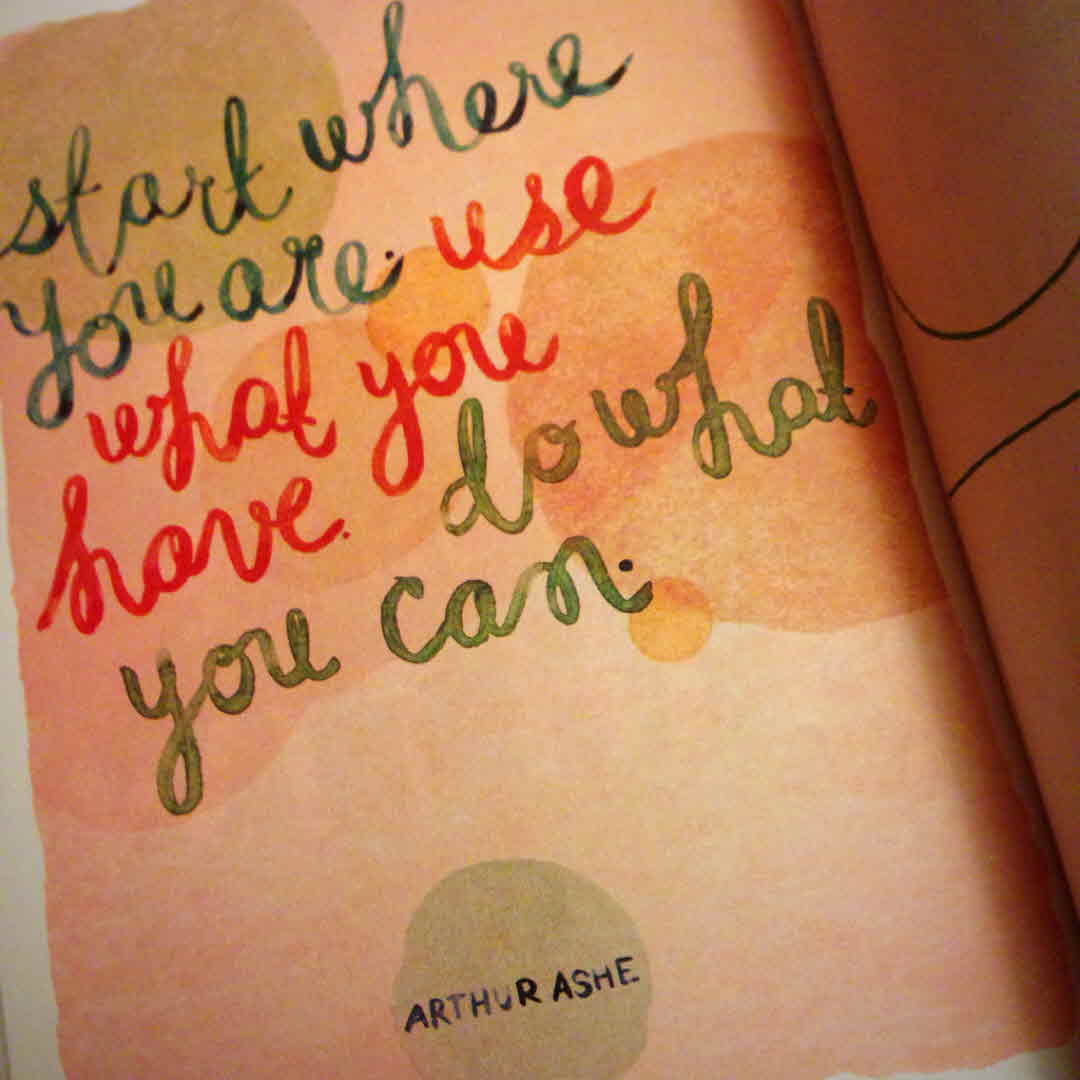 start where
you are. use
what you
have. do what
you can.
ARTHUR ASHE